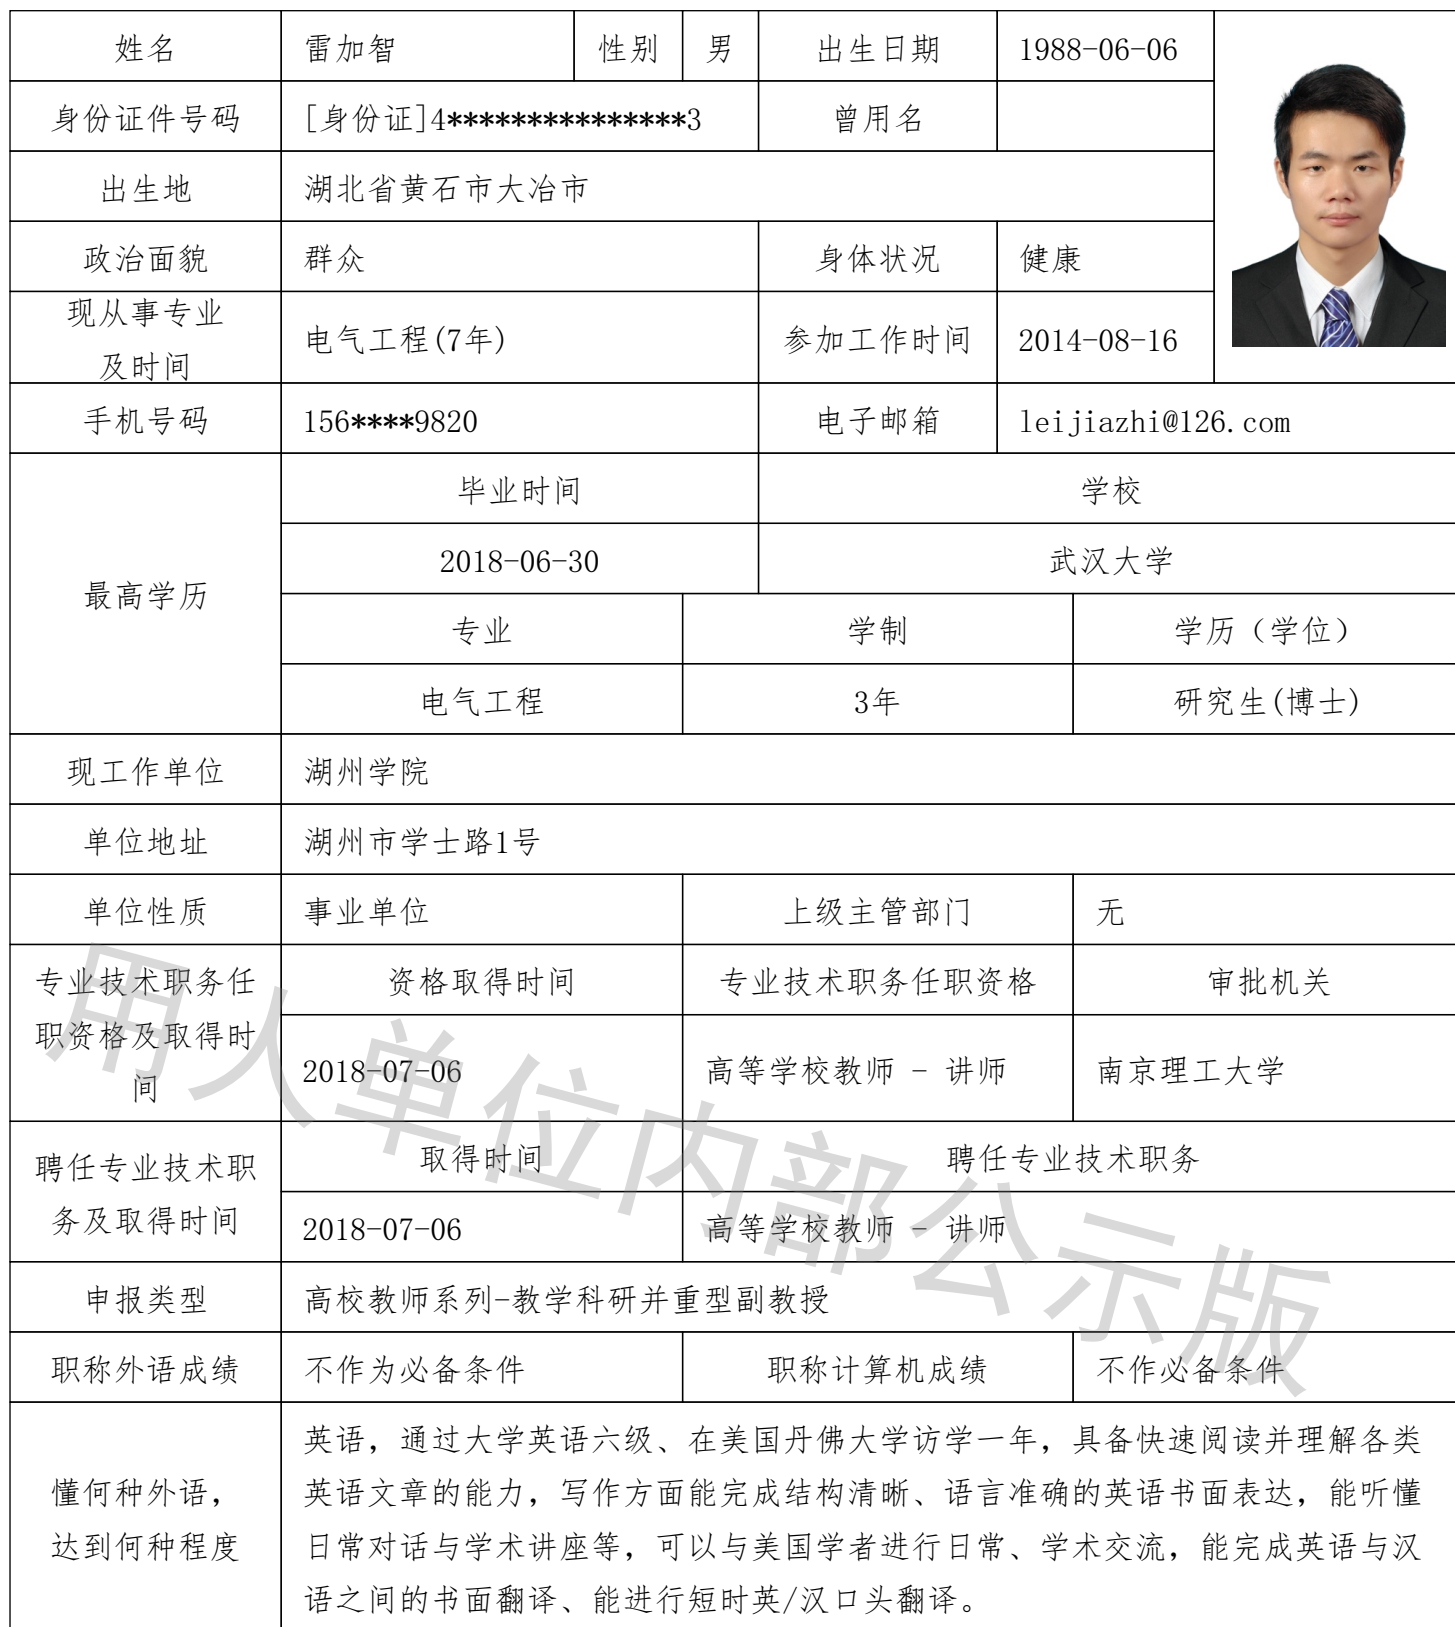 姓名 雷加智 性别 男 出生日期 1988-06-06
身份证件号码 [身份证]4***************3 曾用名
出生地 湖北省黄石市大冶市
政治面貌 群众 身体状况 健康
现从事专业
及时间
电气工程(7年) 参加工作时间 2014-08-16
手机号码 156****9820 电子邮箱 leijiazhi@126.com
最高学历
毕业时间 学校
2018-06-30 武汉大学
专业 学制 学历（学位）
电气工程 3年 研究生(博士)
现工作单位 湖州学院
单位地址 湖州市学士路1号
单位性质 事业单位 上级主管部门 无
专业技术职务任
职资格及取得时
间
资格取得时间 专业技术职务任职资格 审批机关
2018-07-06 高等学校教师 - 讲师 南京理工大学
聘任专业技术职
务及取得时间
取得时间 聘任专业技术职务
2018-07-06 高等学校教师 - 讲师
申报类型 高校教师系列-教学科研并重型副教授
职称外语成绩 不作为必备条件 职称计算机成绩 不作必备条件
懂何种外语，
达到何种程度
英语，通过大学英语六级、在美国丹佛大学访学一年，具备快速阅读并理解各类
英语文章的能力，写作方面能完成结构清晰、语言准确的英语书面表达，能听懂
日常对话与学术讲座等，可以与美国学者进行日常、学术交流，能完成英语与汉
语之间的书面翻译、能进行短时英/汉口头翻译。
用人单位内部公示版